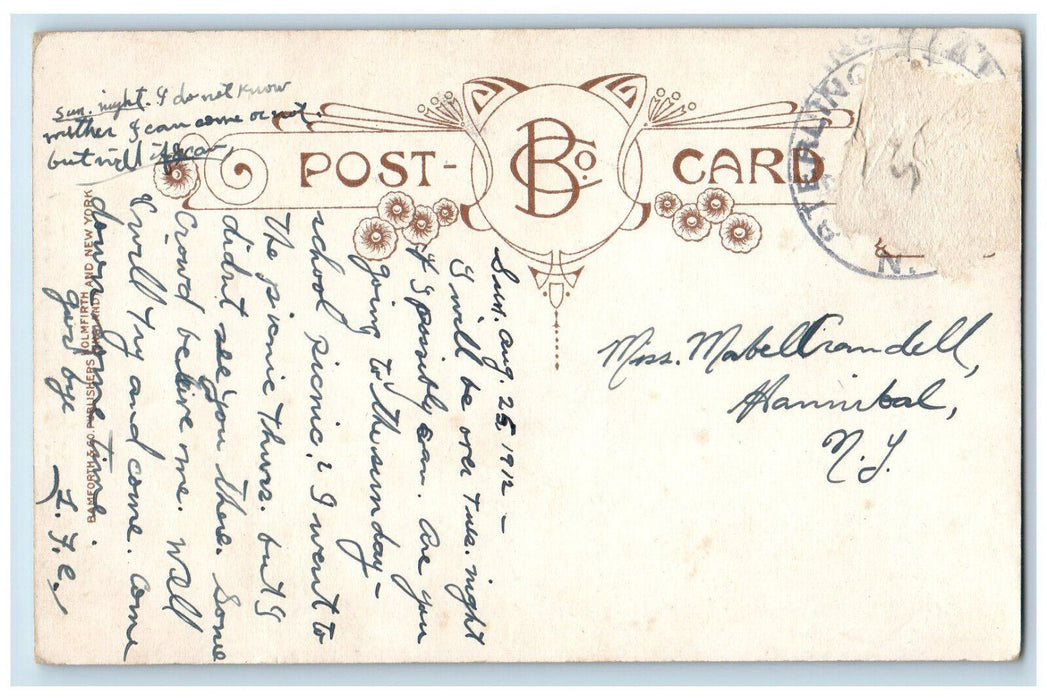 Sun. night. I do not know
wether I can come or not.
but will
POST-
BCo.
CARD
STERLING STAT
N.
Sun. Aug. 25, 1912 —
I will be over Tues. night
if I possibly can. Are you
going to the sunday —
school picnic? I went to
the picnic Thurs. but I
didnt see you there. Some
Crowd believe me. Well
I will try and come. Come
down some time.
good bye
BAMFORTH & CO. PUBLISHERS HOLMFIRTH ENGLAND AND NEW YORK
Miss. Mabel Crandell,
Hannibal,
N.Y.